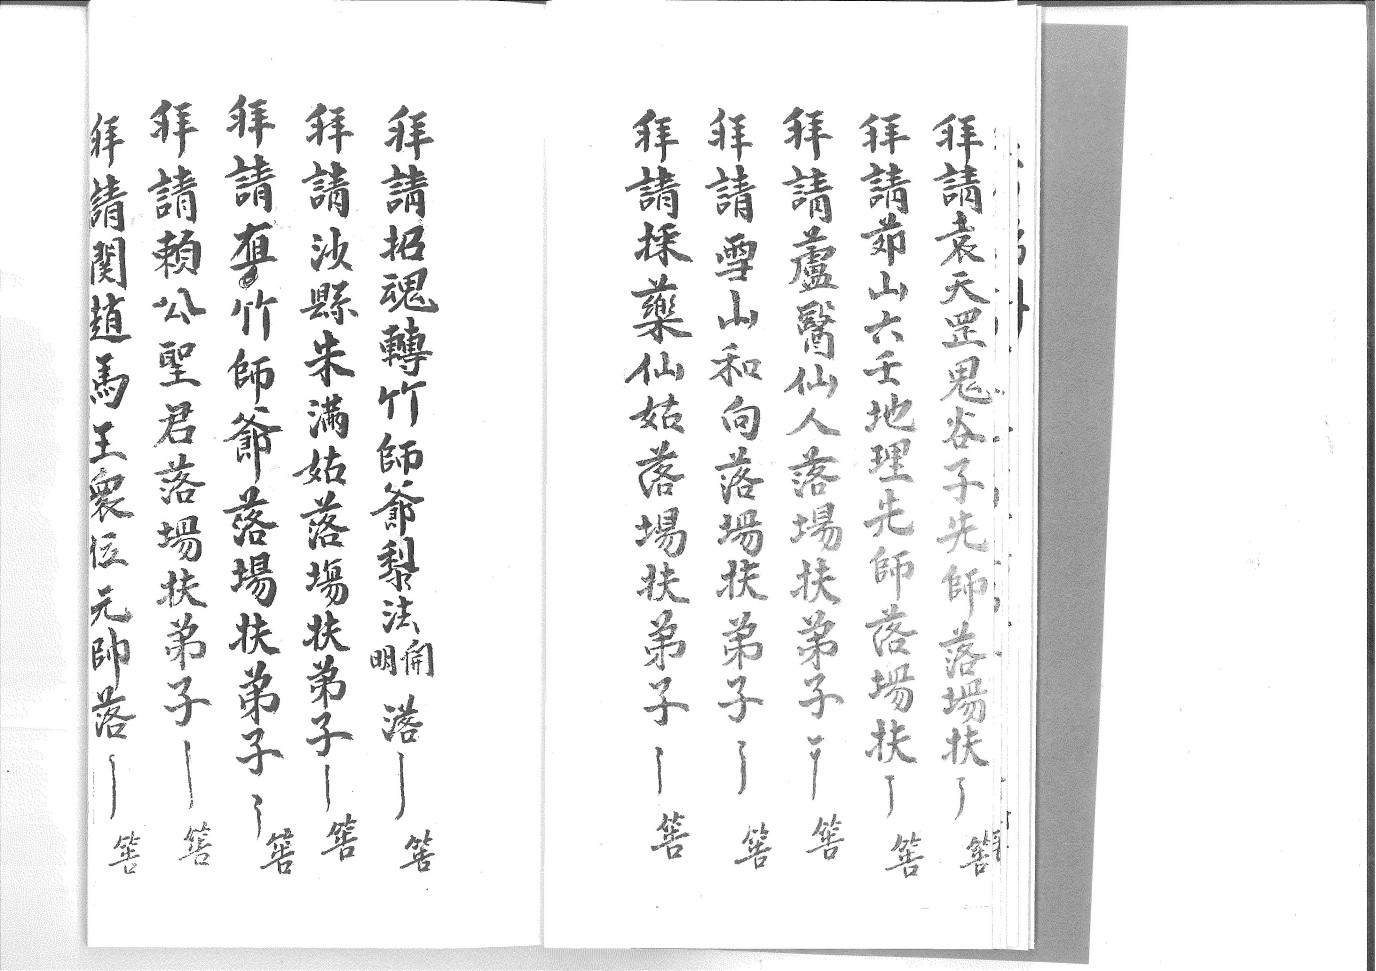 拜請袁天罡鬼谷子先師落場扶
拜請茆山六壬地理先師落場扶 筶
拜請蘆醫仙人落場扶弟子 筶
拜請雪山和尚落場扶弟子 筶
拜請採藥仙姑落場扶弟子 筶
拜請招魂轉竹師爺黎法開明落 筶
拜請沙縣朱滿姑落塲扶弟子 筶
拜請竹師爺落場扶弟子 筶
拜請賴公聖君落場扶弟子 筶
拜請関趙馬王眾位元帥落 筶